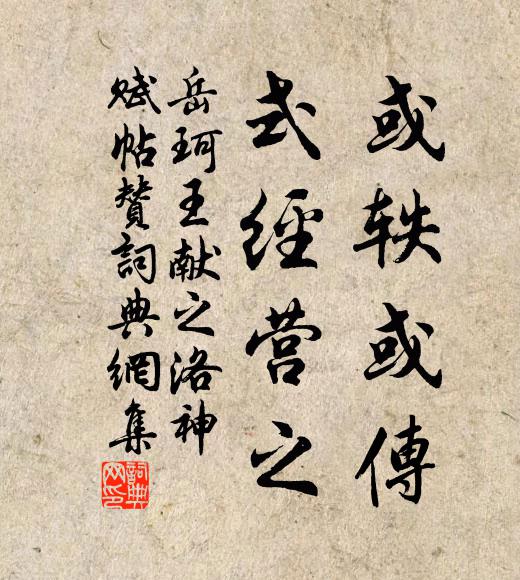 或轶或傳
式經营之
岳珂王献之洛神
赋帖赞詞典網集
詞典网印